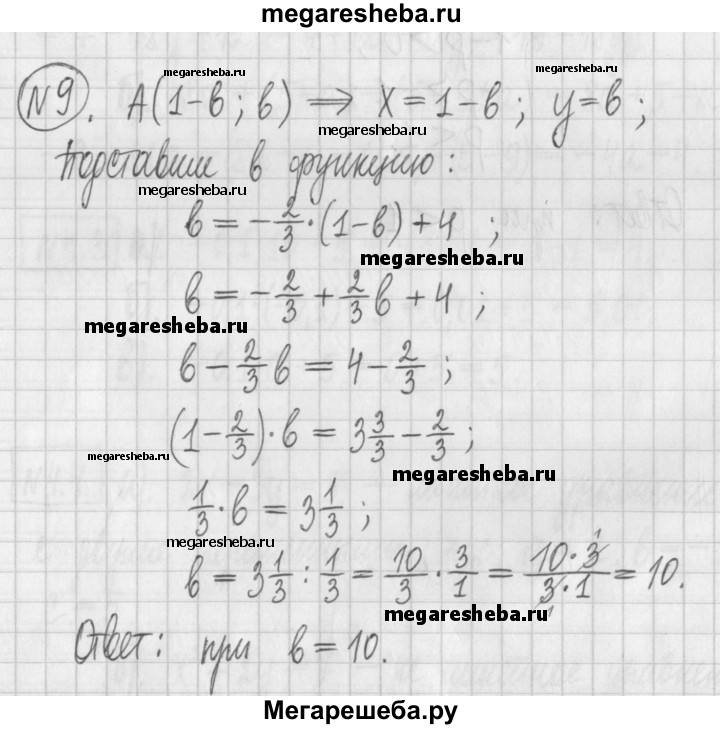 megaresheba.ru
megaresheba.ru megaresheba.ru
№9. A(1-в; в) ⟹ X=1-в; y=в;
megaresheba.ru
Подставим в функцию:
megaresheba.ru
в = -2/3·(1-в)+4 ;
megaresheba.ru
в = -2/3 + 2/3в + 4 ;
megaresheba.ru
в - 2/3в = 4 - 2/3 ;
(1-2/3)·в = 3 3/3 - 2/3 ;
megaresheba.ru
megaresheba.ru
1/3·в = 3 1/3 ;
megaresheba.ru
в = 3 1/3 : 1/3 = 10/3 · 3/1 = 10·3/3·1 = 10.
megaresheba.ru
Ответ: при в=10.
Мегарешеба.ру